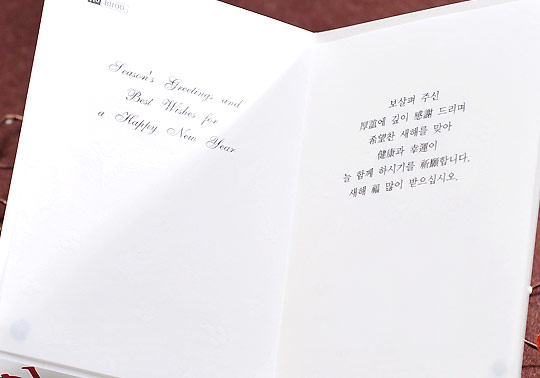 Season's Greetings and
Best Wishes for
a Happy New Year
보살펴 주신
厚誼에 깊이 感謝 드리며
希望찬 새해를 맞아
健康과 幸運이
늘 함께 하시기를 祈願합니다.
새해 福 많이 받으십시오.